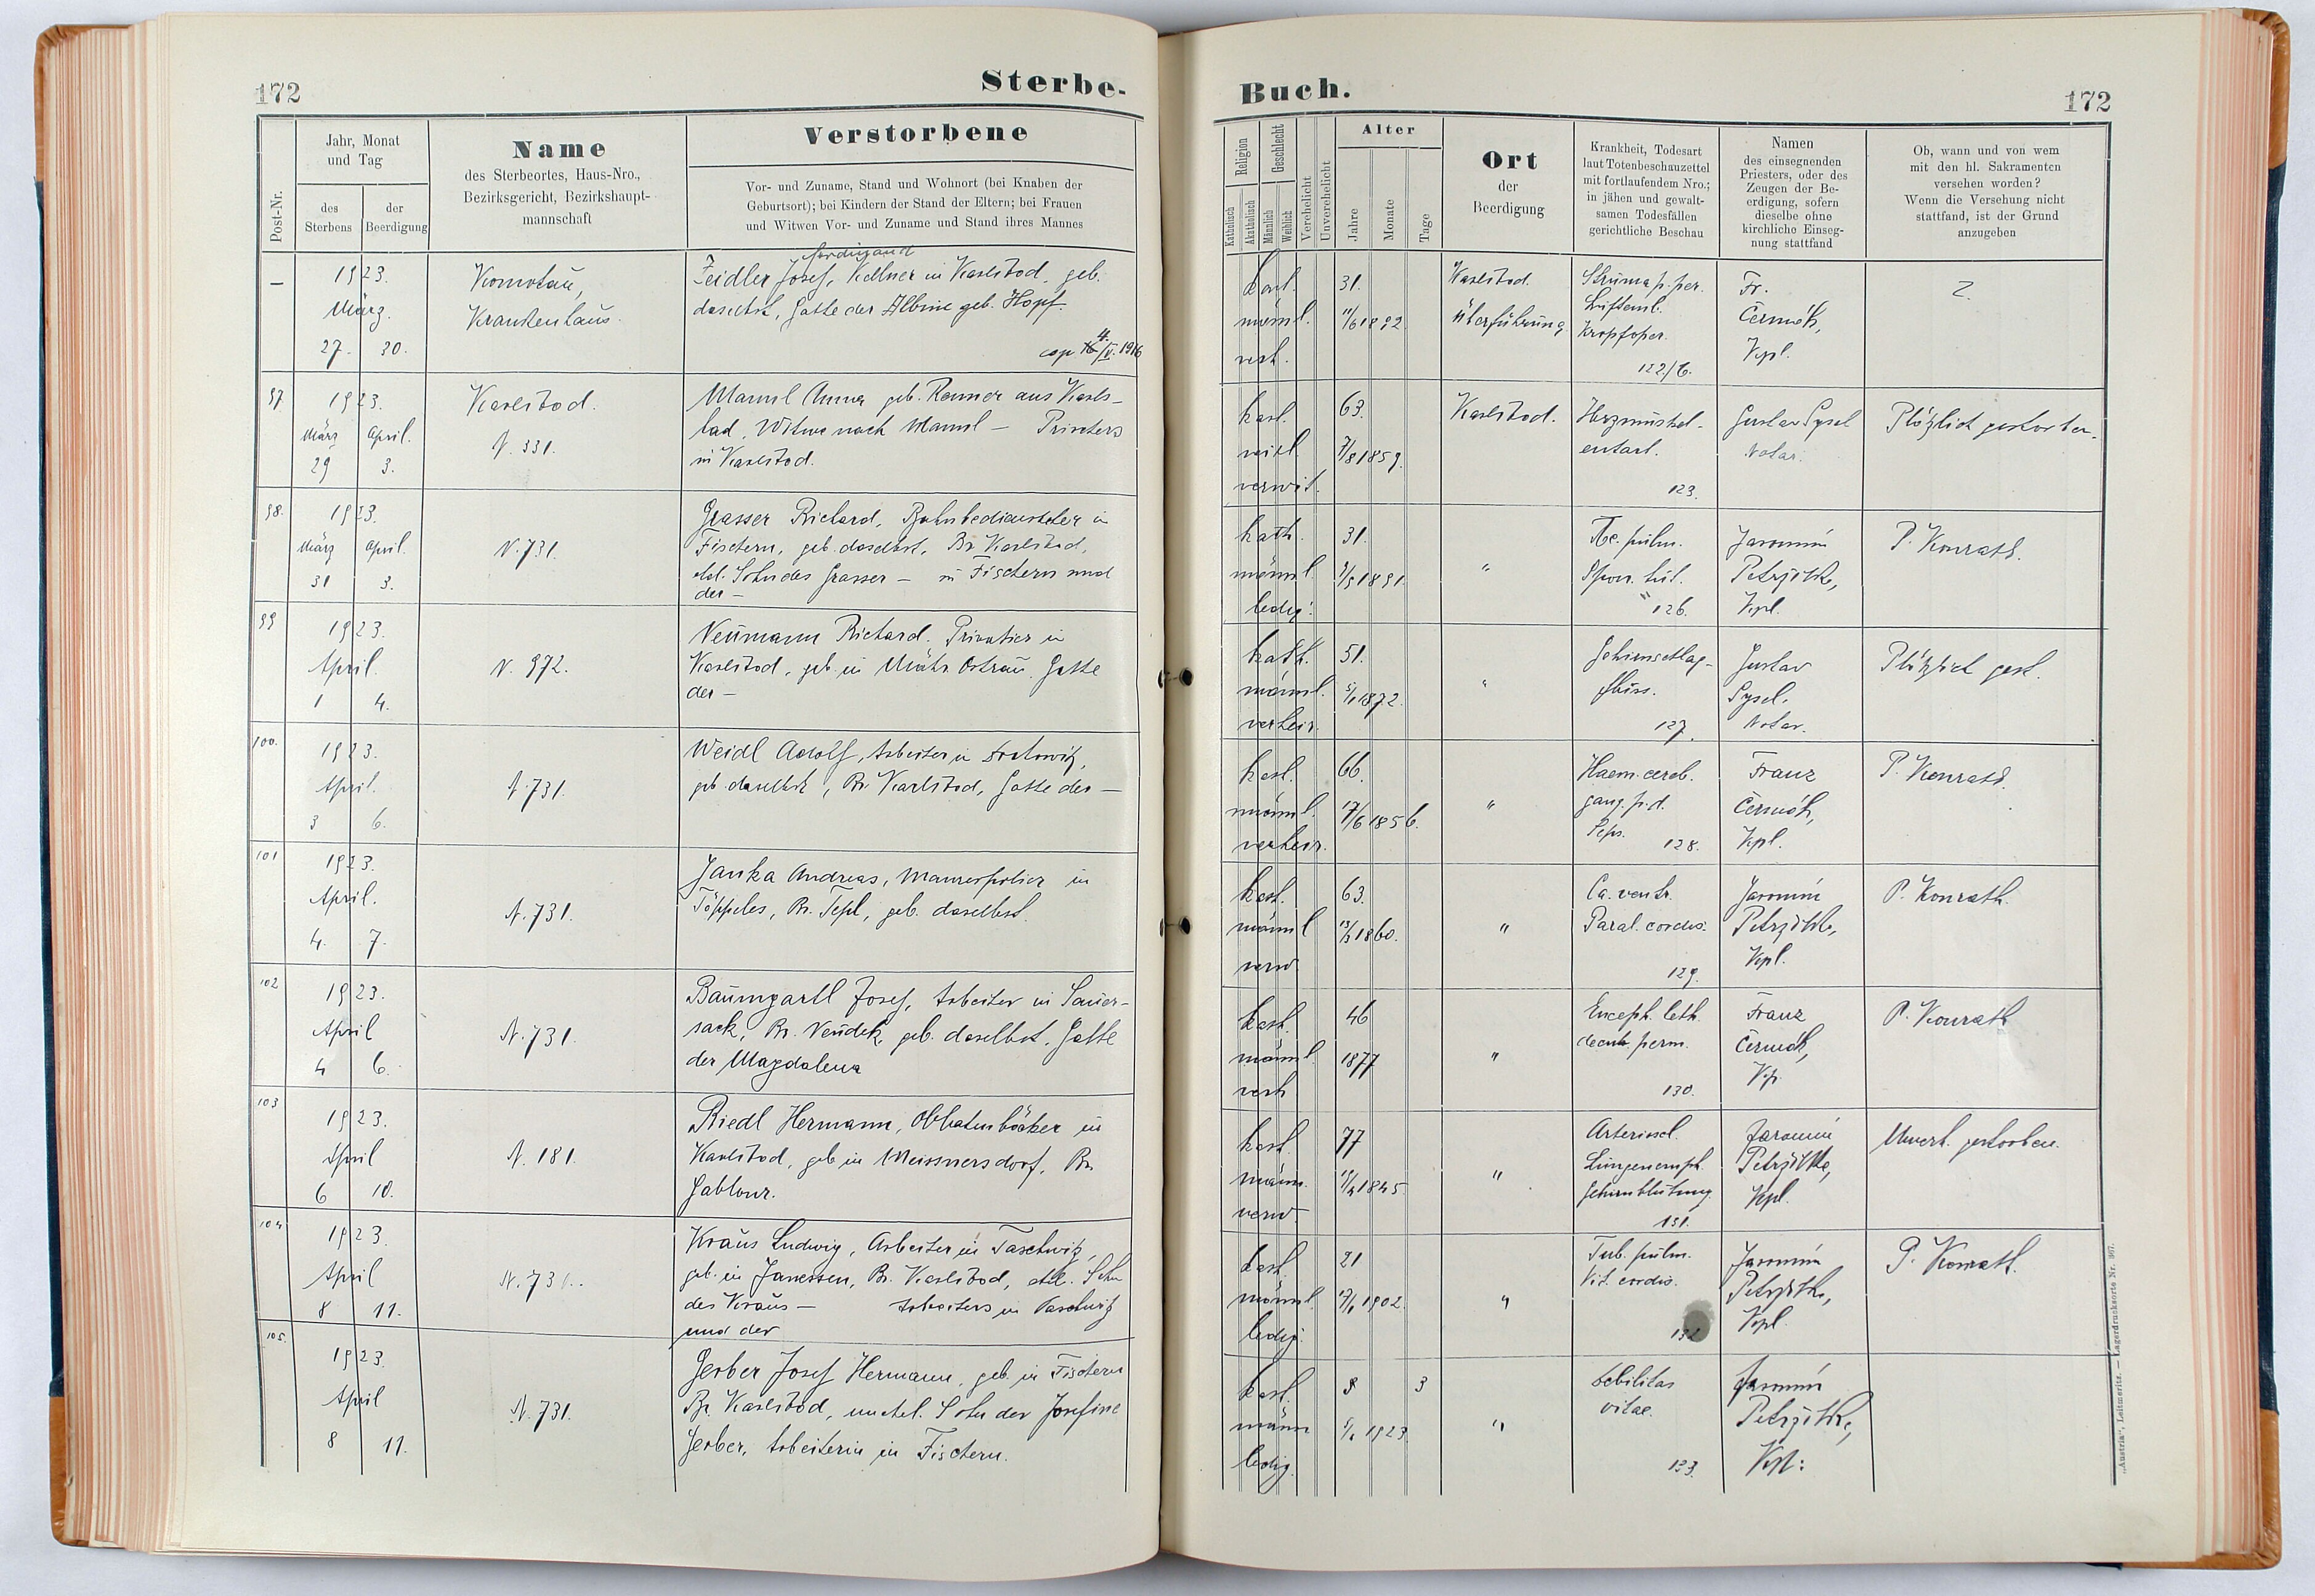 172
Sterbe-
Post-Nr.
Jahr, Monat
und Tag
des
Sterbens
der
Beerdigung
Name
des Sterbeortes, Haus-Nro.,
Bezirksgericht, Bezirkshaupt-
mannschaft
Verstorbene
Vor- und Zuname, Stand und Wohnort (bei Knaben der
Geburtsort); bei Kindern der Stand der Eltern; bei Frauen
und Witwen Vor- und Zuname und Stand ihres Mannes
Buch.
172
Religion
Katholisch
Akatholisch
Geschlecht
Männlich
Weiblich
Verehelicht
Unverehelicht
Alter
Jahre
Monate
Tage
Ort
der
Beerdigung
Krankheit, Todesart
laut Totenbeschauzettel
mit fortlaufendem Nro.;
in jähen und gewalt-
samen Todesfällen
gerichtliche Beschau
Namen
des einsegnenden
Priesters, oder des
Zeugen der Be-
erdigung, sofern
dieselbe ohne
kirchliche Einseg-
nung stattfand
Ob, wann und von wem
mit den hl. Sakramenten
versehen worden?
Wenn die Versehung nicht
stattfand, ist der Grund
anzugeben
–
1923.
März.
27. 30.
Komotau,
Krankenhaus.
Ferdinand
Zeidler Josef, Kellner in Karlsbad, geb.
daselbst, Gatte der Albine geb. Hopf.
1916
kath.
männl.
verh.
31.
11/6 1892
Karlsbad.
Überführung
Struma p. per.
Luftemb.
Kropfoper.
122/6.
Fr.
Čermák,
Kpl.
97
1923.
März April.
29 3.
Karlsbad.
N. 331.
Anna geb. Renner aus Karls-
bad, Witwe nach –
in Karlsbad.
kath.
weibl.
verwit.
63.
7/8 1859.
Karlsbad.
Herzmuskel-
entart.
123.
Gustav Sysel
Notar.
Plötzlich gestorben.
98.
1923.
März April.
31 3.
N. 731.
Grasser Richard, Bahnbediensteter in
Fischern, geb. daselbst, Bz. Karlsbad,
ehel. Sohn des Grasser – in Fischern und
der –
kath.
männl.
ledig.
31.
1891.
"
Tbc. pulm.
126.
Jaromír
Kpl.
P. Konrath.
99
1923.
April.
1 4.
N. 972.
Neumann Richard. Privatier in
Karlsbad, geb. in Mähr. Ostrau. Gatte
der –
kath.
männl.
verheir.
51.
5/1 1872.
"
Gehirnschlag-
fluss.
127.
Gustav
Sysel.
Notar.
Plötzlich gest.
100.
1923.
April.
3 6.
N. 731.
Weidl Adolf, Arbeiter in
geb. daselbst, Bz. Karlsbad, Gatte der –
kath.
männl.
verheir.
66.
17/6 1856.
"
Haem. cereb.
gang. p. d.
Seps.
128.
Franz
Čermák,
Kpl.
P. Konrath.
101
1923.
April.
4. 7.
N. 731.
Janka Andreas, Maurerpolier in
Töppeles, Bz. Tepl, geb. daselbst.
kath.
männl
verw.
63.
1860.
"
Ca. ventr.
Paral. cordis.
129.
Jaromír
Kpl.
P. Konrath.
102
1923.
April
4 6.
N. 731.
Baumgartl Josef, Arbeiter in Sauer-
sack, Bz. Neudek, geb. daselbst, Gatte
der Magdalena
kath.
männl.
verh.
46
1877
"
Enceph. leth.
130.
Franz
Čermák,
Kp.
P. Konrath
103
1923.
April
6 10.
N. 181.
Riedl Hermann, Oblatenbäcker in
Karlsbad, geb. in Meissnersdorf, Bz.
Gablonz.
kath.
männ.
verw.
77
1845.
"
Arterioscl.
Lungenemph.
Gehirnblutung.
131.
Jaromír
Kpl.
Unverh. gestorben.
104
1923.
April
8 11.
N. 731.
Kraus Ludwig, Arbeiter in Taschwitz,
geb. in Janessen, Bz. Karlsbad, ehel. Sohn
des Kraus – Arbeiters in Taschwitz
und der
kath.
männl.
ledig.
21
17/1 1902.
"
Tub. pulm.
Vit. cordis.
132
Jaromír
Kpl.
P. Konrath.
105.
1923.
April
8 11.
N. 731.
Gerber Josef Hermann, geb. in Fischern
Bz. Karlsbad, unehel. Sohn der Josefine
Gerber, Arbeiterin in Fischern.
kath.
männ
ledig.
3
1923.
"
Debilitas
vitae.
133.
Jaromír
Kpl.
„Austria", Leitmeritz. — Lagerdrucksorte Nr. 307.